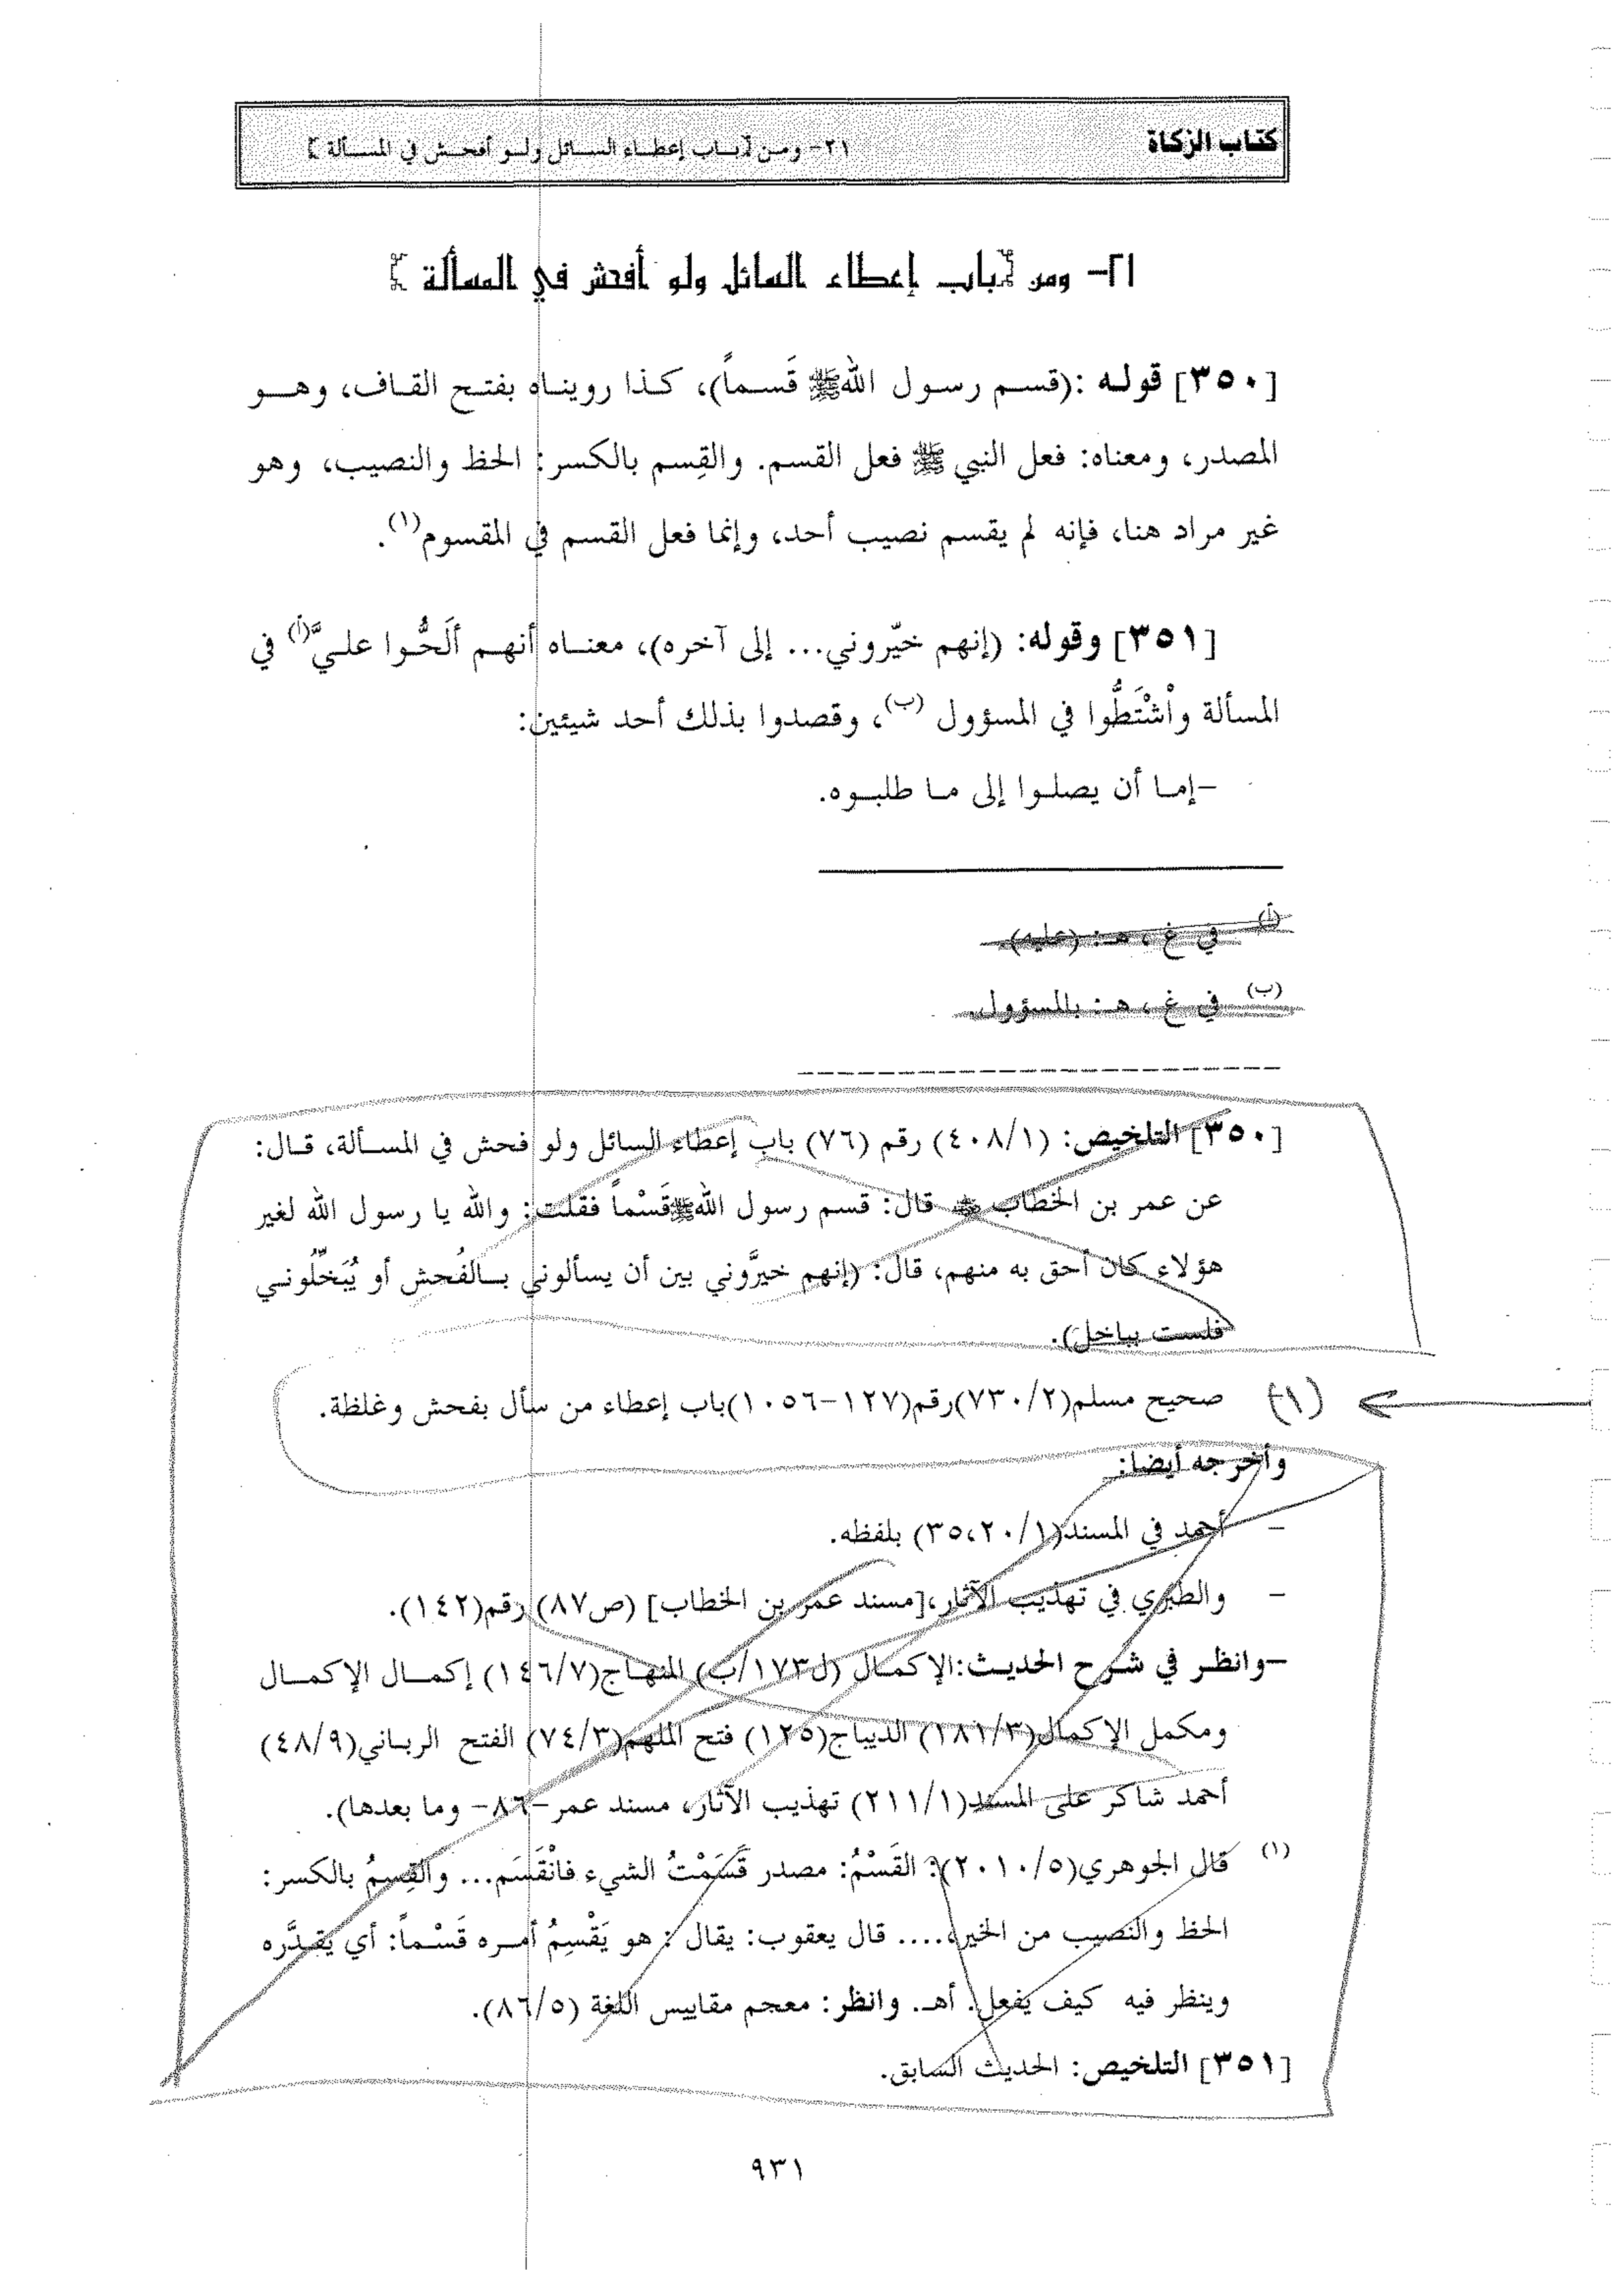 كتاب الزكاة ٢١- ومن {باب إعطاء السائل ولو أفحش في المسألة}
٢١- ومن {باب إعطاء السائل ولو أفحش في المسألة}
[٣٥٠] قوله :(قسم رسول الله ﷺ قَسماً)، كذا رويناه بفتح القاف، وهو
المصدر، ومعناه: فعل النبي ﷺ فعل القسم. والقِسم بالكسر: الحظ والنصيب، وهو
غير مراد هنا، فإنه لم يقسم نصيب أحد، وإنما فعل القسم في المقسوم(١).
[٣٥١] وقوله: (إنهم خيّروني... إلى آخره)، معناه أنهم ألَحُّوا عليَّ(أ) في
المسألة واْشْتَطُّوا في المسؤول (ب)، وقصدوا بذلك أحد شيئين:
-إما أن يصلوا إلى ما طلبوه.
(أ) في غ ، هـ: (عليه)
(ب) في غ ، هـ: بالمسؤول.
[٣٥٠] التلخيص: (٤٠٨/١) رقم (٧٦) باب إعطاء السائل ولو فحش في المسألة، قال:
عن عمر بن الخطاب ﷺ قال: قسم رسول الله ﷺ قَسْماً فقلت: والله يا رسول الله لغير
هؤلاء كان أحق به منهم، قال: (إنهم خيرَّوني بين أن يسألوني بالفُحش أو يُبَخِّلُوني
فلست بباخل).
(١) صحيح مسلم(٧٣٠/٢)رقم(١٢٧-١٠٥٦)باب إعطاء من سأل بفحش وغلظة.
وأخرجه أيضا:
- أحمد في المسند(٣٥،٢٠/١) بلفظه.
- والطبري في تهذيب الآثار،[مسند عمر بن الخطاب] (ص٨٧) رقم(١٤٢).
-وانظر في شرح الحديث:الإكمال (ل١٧٣/ب) المنهاج(١٤٦/٧) إكمال الإكمال
ومكمل الإكمال(١٨١/٣) الديباج(١٢٥) فتح الملهم(٧٤/٣) الفتح الرباني(٤٨/٩)
أحمد شاكر على المسند(٢١١/١) تهذيب الآثار، مسند عمر-٨٦- وما بعدها).
(١) قال الجوهري(٢٠١٠/٥): القَسْمُ: مصدر قَسَمْتُ الشيء فانْقَسَم... والقِسمُ بالكسر:
الحظ والنصيب من الخير،.... قال يعقوب: يقال : هو يَقْسِمُ أمره قَسْماً: أي يقدَّره
وينظر فيه كيف يفعل. أهـ. وانظر: معجم مقاييس اللغة (٨٦/٥).
[٣٥١] التلخيص: الحديث السابق.
٩٣١